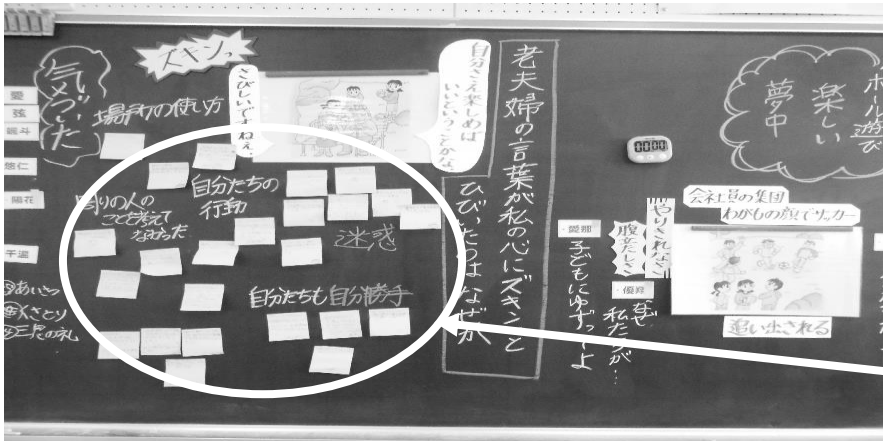 ボール遊び
楽しい
夢中
会社員の集団
わがもの顔でサッカー
追い出される
やりきれなさ
腹立たしさ
・愛那
子どもにゆずってよ
・優芽
なぜ
私たちが…
00:00
老夫婦の言葉が私の心にズキンと
ひびいたのはなぜか
自分さえ楽しめば
いいということかな。
さびしいですねぇ。
ズキンっ
場所の使い方
自分たちの
行動
周りの人の
ことを考えて
なかった
迷惑
自分たちも自分勝手
気づいた
愛
弦
颯斗
悠仁
陽花
千温
あいさつ